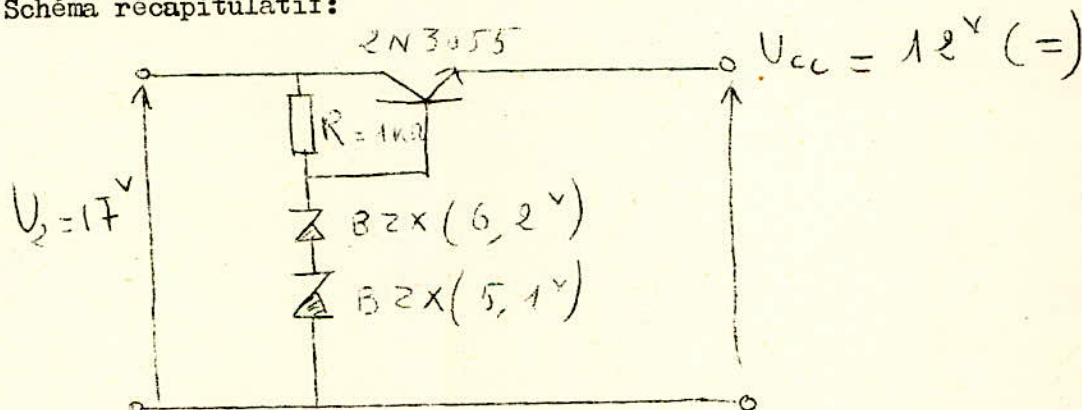 Schéma recapitulatif:
2N3055
Ucc = 12v (=)
R = 1kΩ
U2 = 17v
BZX (6,2v)
BZX (5,1v)